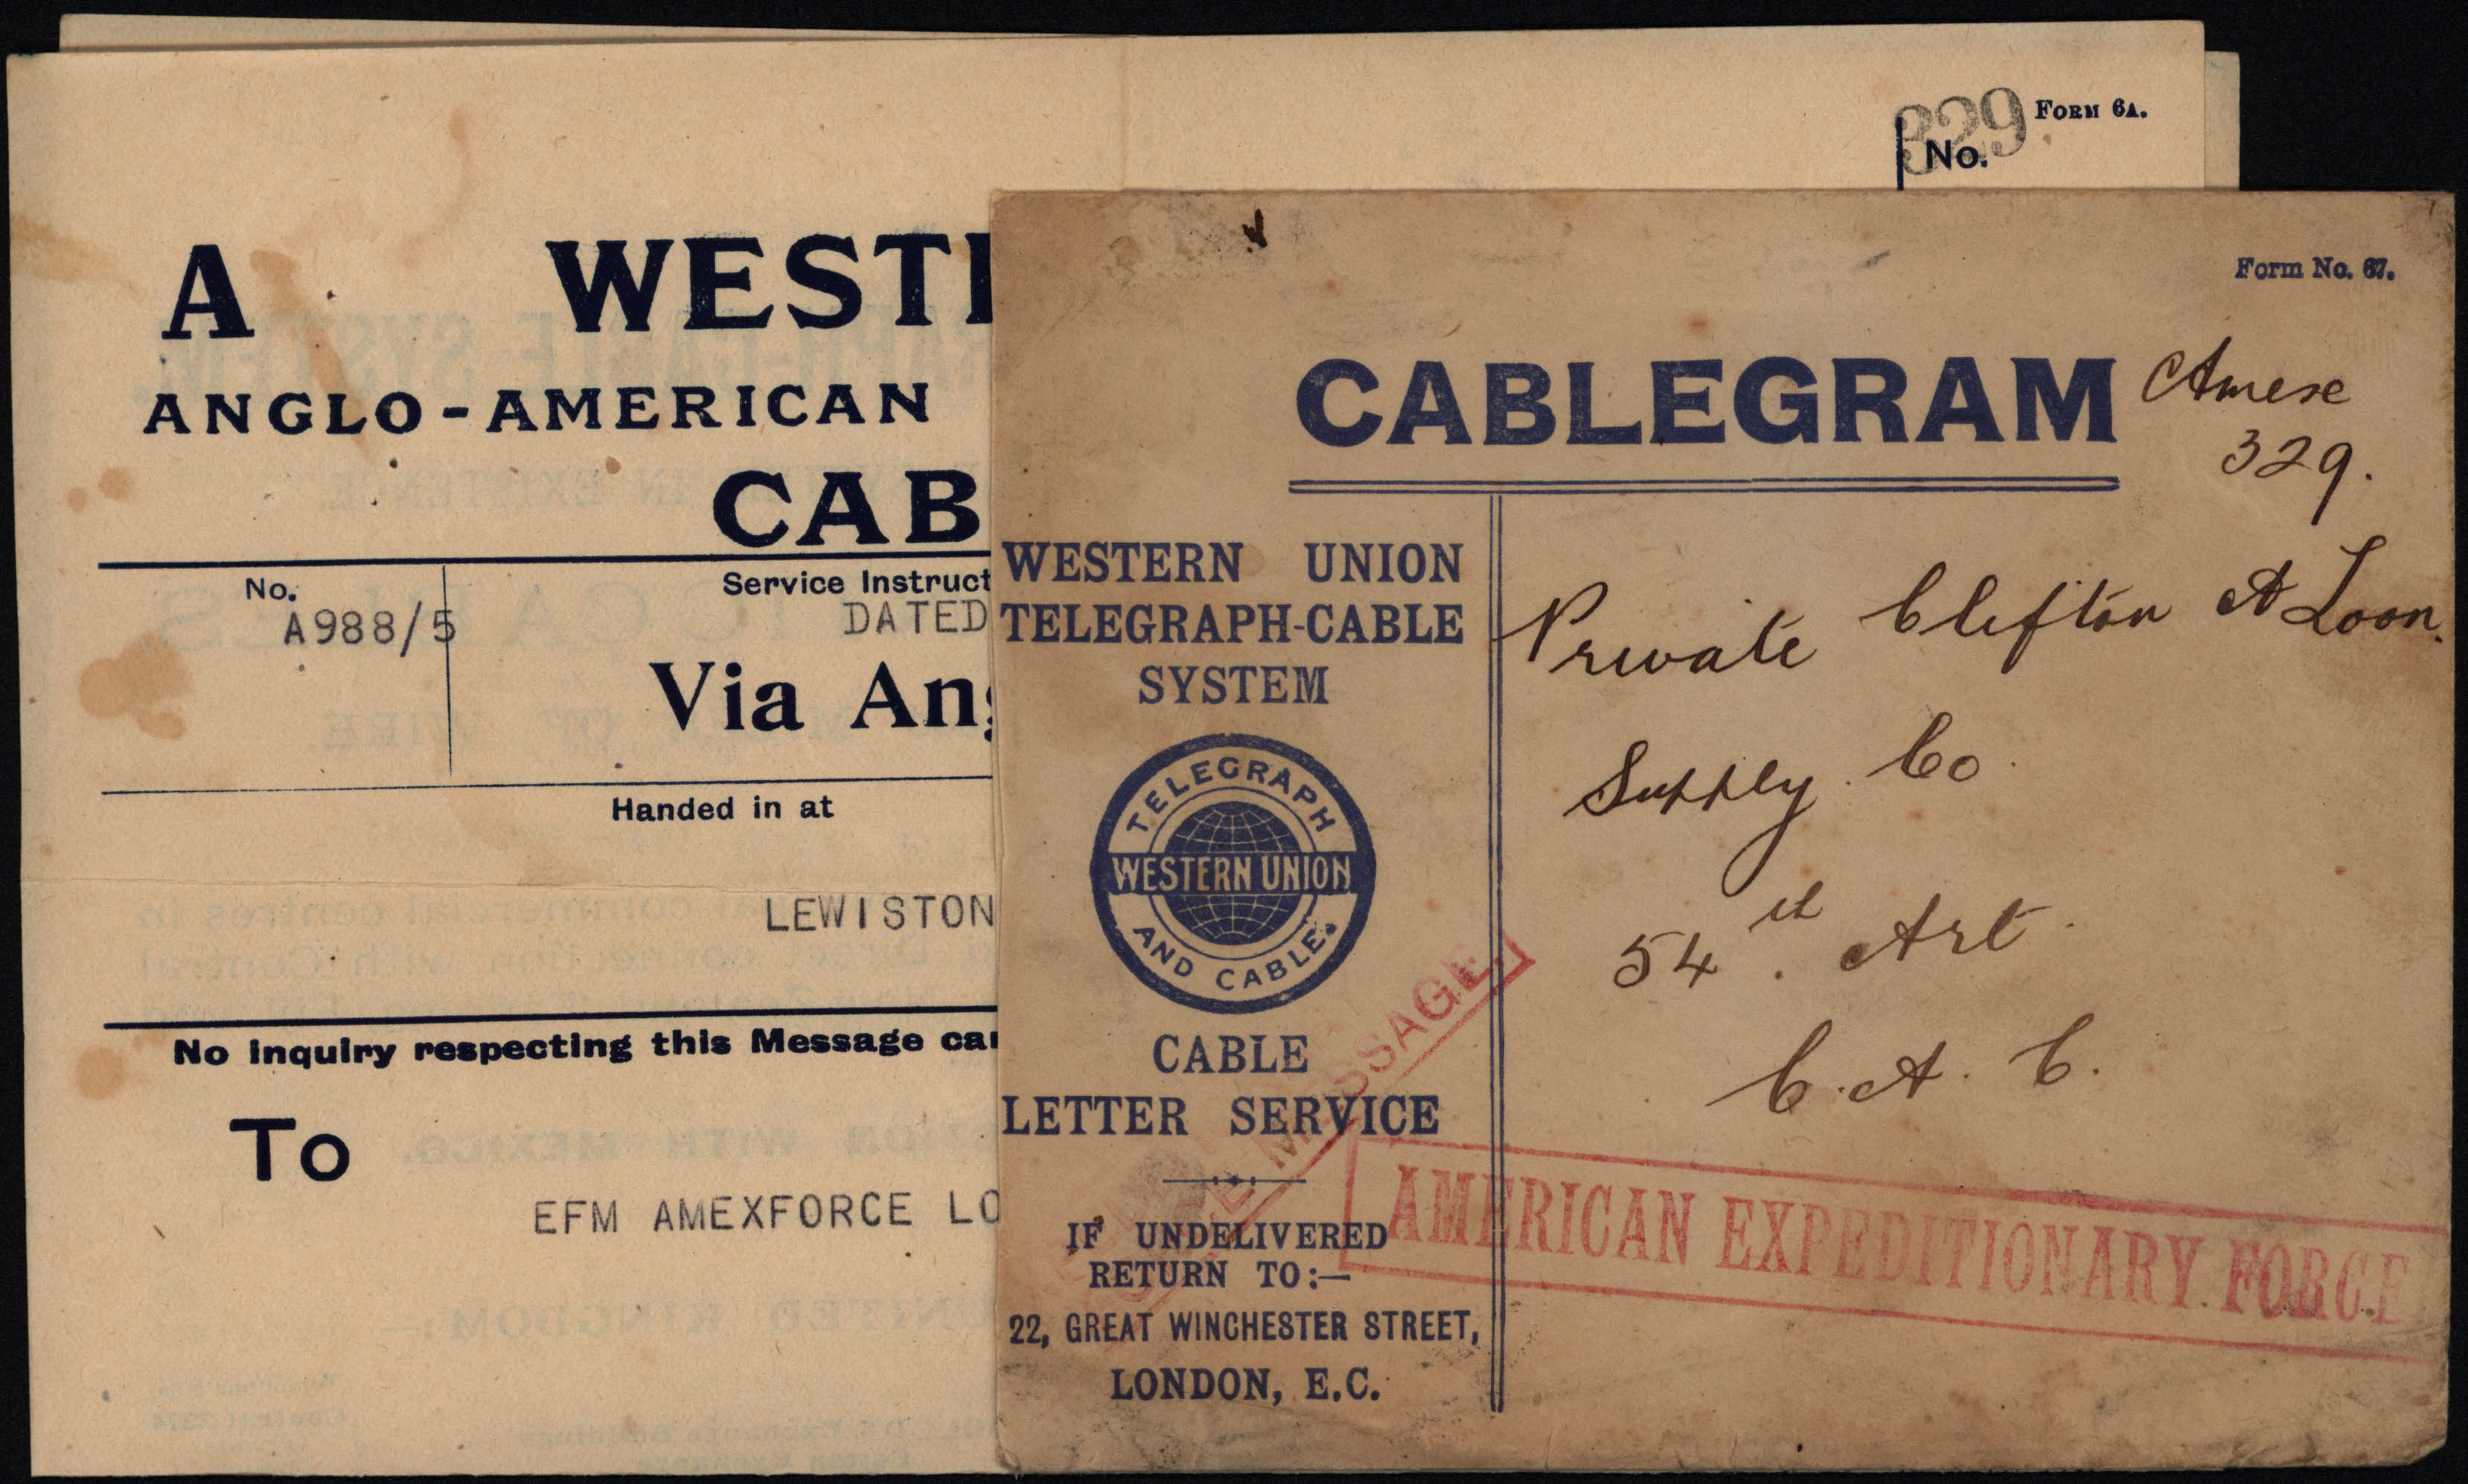 329
FORM 6A.
No.
A WESTE
ANGLO-AMERICAN
CAB
No.
A988/5
Service Instruct
DATED
Via Ang
Handed in at
LEWISTON
No inquiry respecting this Message can
To
EFM AMEXFORCE LO
Form No. 67.
CABLEGRAM
Amexe
329.
WESTERN UNION
TELEGRAPH-CABLE
SYSTEM
TELEGRAPH
WESTERN UNION
AND CABLE
CABLE
LETTER SERVICE
IF UNDELIVERED
RETURN TO:—
22, GREAT WINCHESTER STREET,
LONDON, E.C.
Private Clifton A Loon.
Supply Co
54th Art
C. A. C.
MESSAGE.
AMERICAN EXPEDITIONARY FORCE